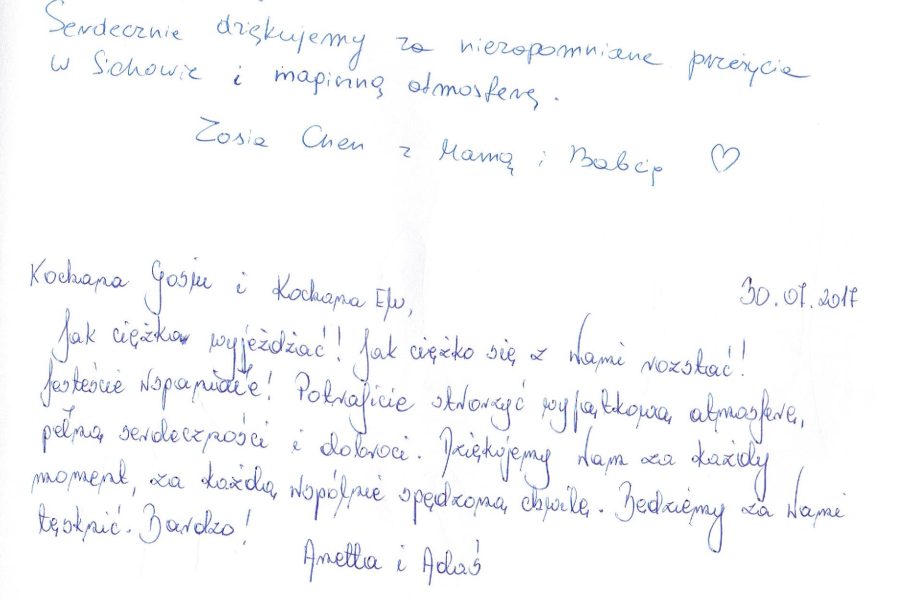 Serdecznie dziękujemy za niezapomniane przeżycia
w Sichowie i magiczną atmosferę.
Zosia Chen z Mamą i Babcią ♡
Kochana Gosiu i Kochana Ewo,
30.07.2017
Jak ciężko wyjeżdżać! Jak ciężko się z Wami rozstać!
Jesteście wspaniałe! Potraficie stworzyć wyjątkową atmosferę,
pełną serdeczności i dobroci. Dziękujemy Wam za każdy
moment, za każdą wspólnie spędzoną chwilę. Będziemy za Wami
tęsknić. Bardzo!
Anetta i Adaś